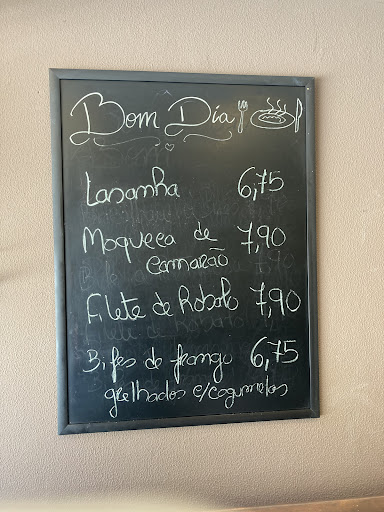 Bom Dia
Lasanha 6,75
Moqueca de 7,90
camarão
Filete de Robalo 7,90
Bifes de frango 6,75
grelhados c/cogumelos